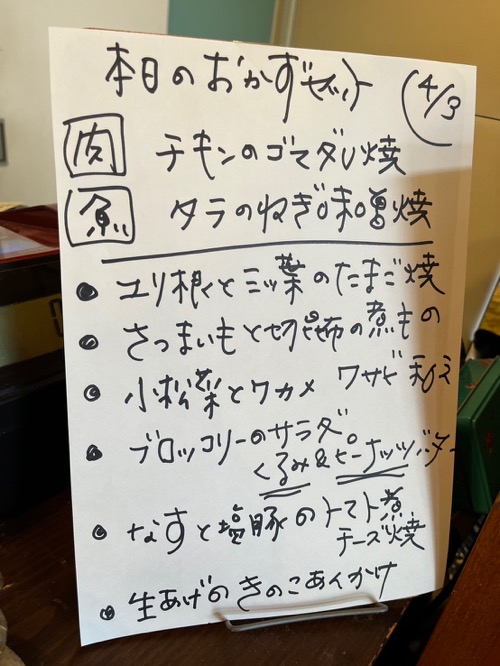 本日のおかずセット (4/3
肉 チキンのゴマダレ焼
魚 タラのねぎ味噌焼
• ユリ根と三ッ葉のたまご焼
• さつまいもと切昆布の煮もの
• 小松菜とワカメ ワサビ和え
• ブロッコリーのサラダ。
くるみ&ピーナッツバター
• なすと塩豚のトマト煮
チーズ焼
• 生あげのきのこあんかけ